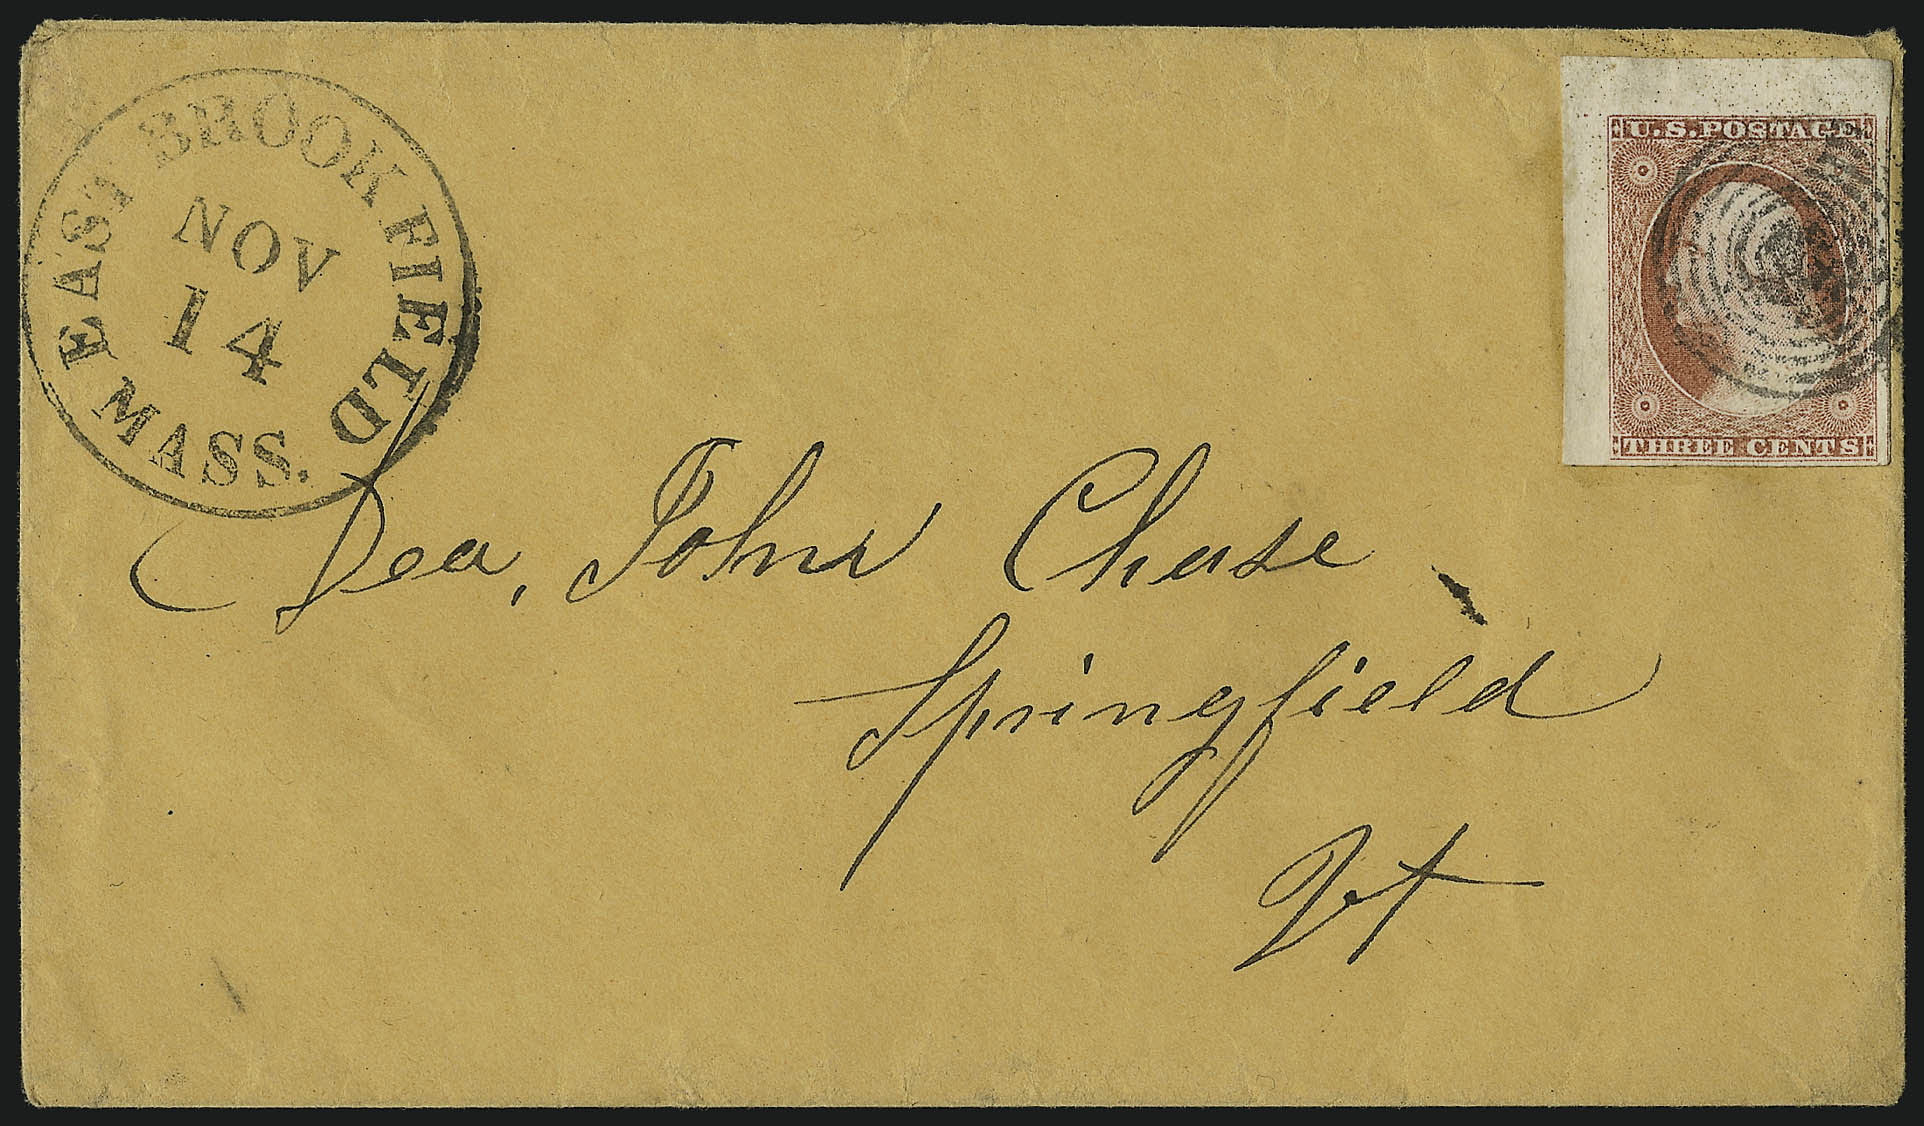 EAST BROOKFIELD
MASS.
NOV
14
U.S. POSTAGE
THREE CENTS
Dea, John Chase
Springfield
Vt